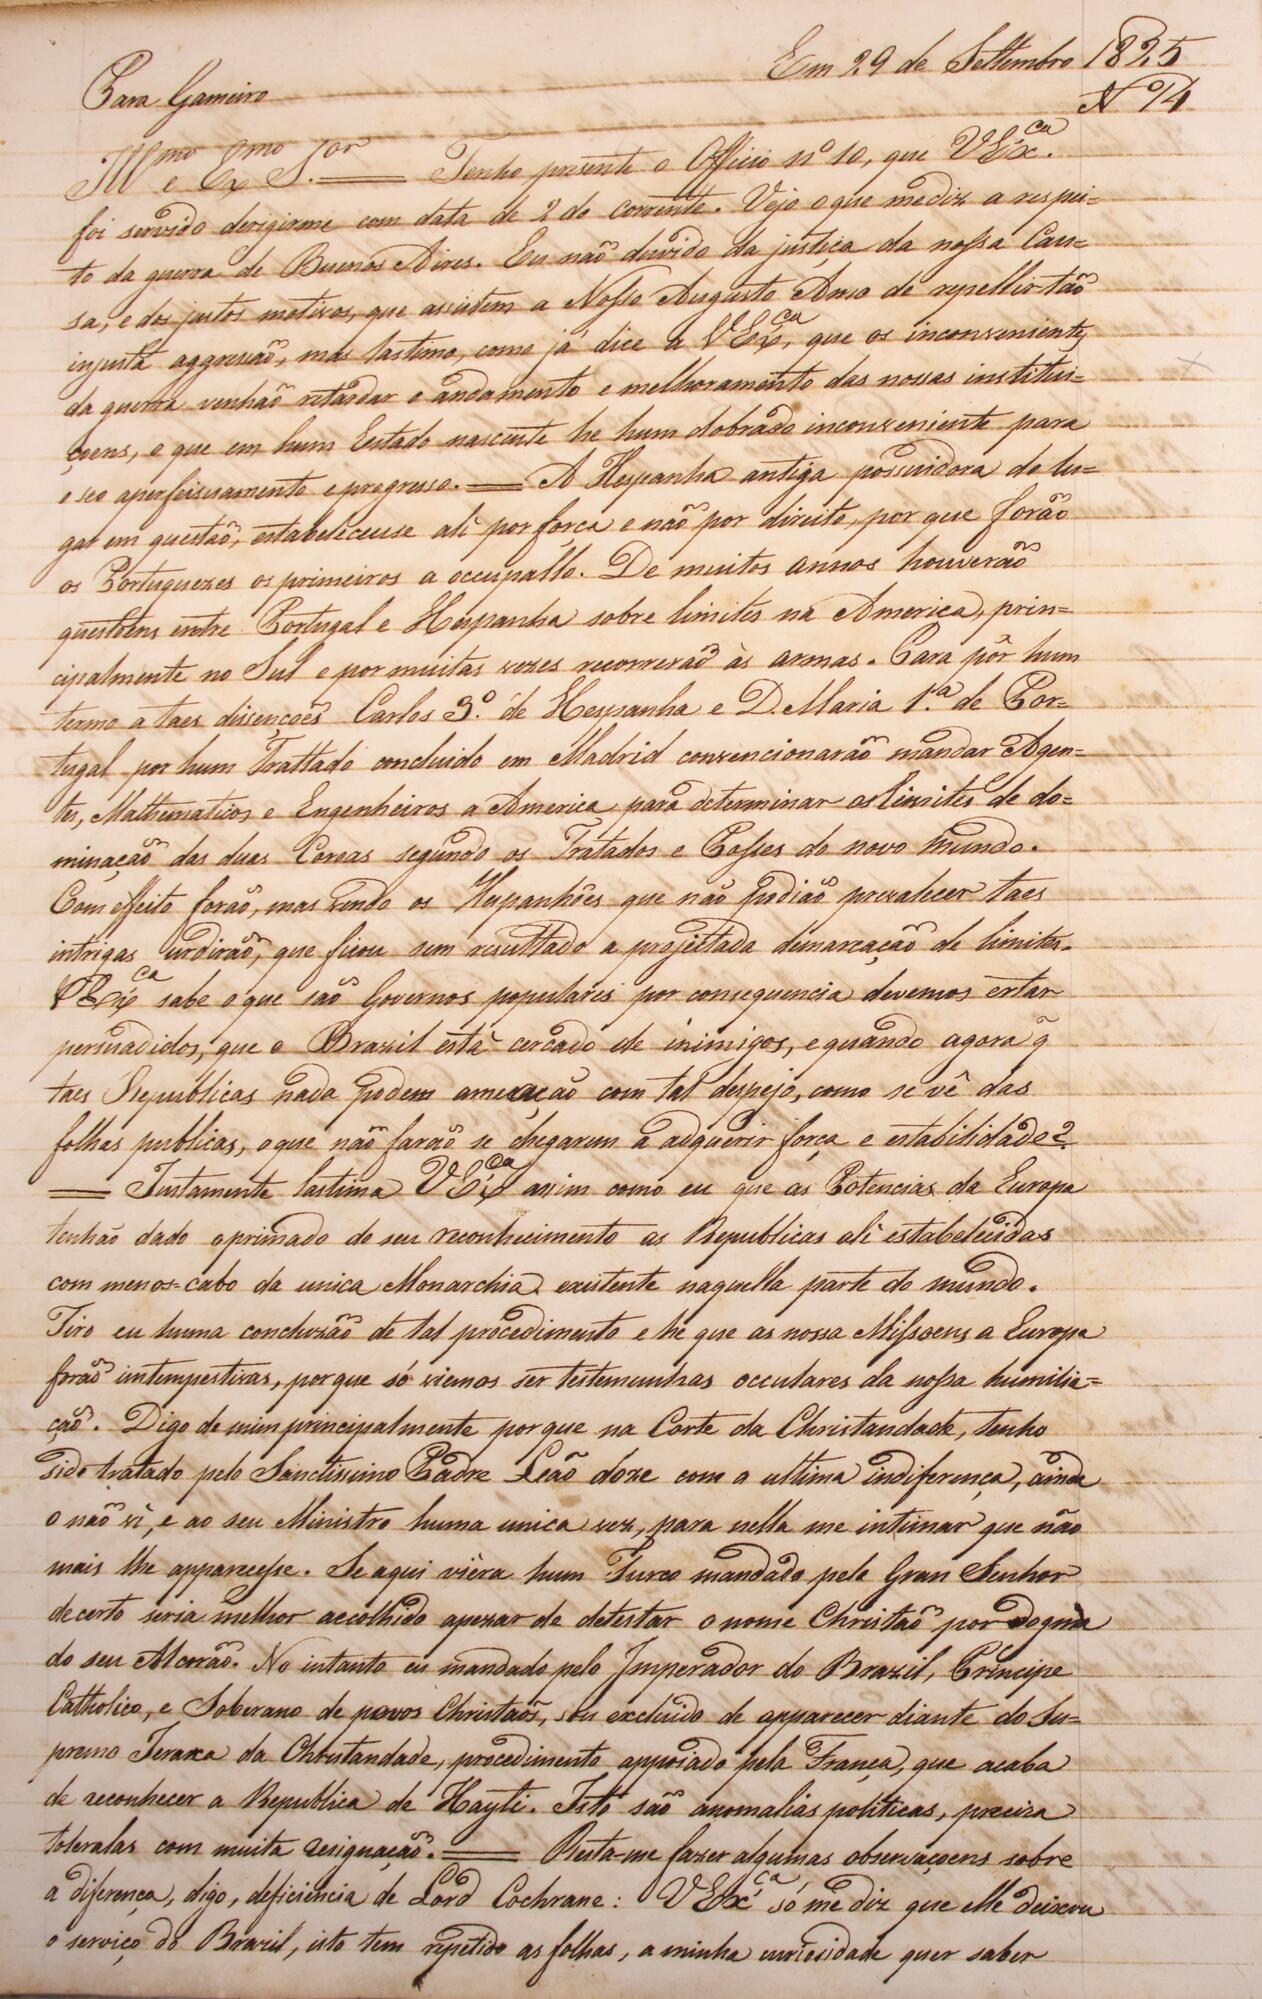 Em 29 de Settembro 1825
Para Gameiro
Nº 14
Illmo e Exmo Sor. == Tenho presente o Officio nº 10, que VExca.
foi servido derigirme com data de 2 do corrente. Vejo o que me diz a respei=
to da guerra de Buenos Aires. Eu não duvido da justiça da nossa Cau=
sa, e dos justos motivos, que assistem a Nosso Augusto Amo de repellir tão
injusta aggressão, mas lastimo, como já dice a VExca, que os inconvenientes
da guerra venhão retardar o andamento e melhoramento das nossas institui=
çoens, o que em hum Estado nascente he hum dobrado inconveniente para
o seo aperfeisuamento e progresso. == A Hespanha antiga possuidora do lu=
gar em questão, estabeleceuse ali por força e não por direito, por que forão
os Portuguezes os primeiros a occupallo. De muitos annos houverão
questoens entre Portugal e Hespanha sobre limites na America, prin=
cipalmente no Sul e por muitas vezes recorrerão às armas. Para pôr hum
termo a taes dissençoes Carlos 3º. de Hespanha e D. Maria 1ª. de Por=
tugal por hum Trattado concluido em Madrid convencionarão mandar Agen=
tes, Mathematicos e Engenheiros a America para determinar os limites de do=
minação das duas Coroas segundo os Tratados e Posses do novo mundo.
Com effeito forão, mas vendo os Hespanhões que não podião prevalecer taes
intrigas urdirão, que ficou sem resultado a projectada dimarcação de limites.
VExca sabe o que são Governos populares por consequencia devemos estar
persuadidos, que o Brazil està cercado de inimigos, e quando agora q̃
taes Republicas nada podem ameação com tal despejo, como se vê das
folhas publicas, o que não farão se chegarem a adquerir força e estabilidade?
== Justamente lastima VExca assim como eu que as Potencias da Europa
tenhão dado o primado do seu reconhecimento as Republicas ali estabelecidas
com menos=cabo da unica Monarchia existente naquella parte do mundo.
Tiro eu huma concluzão de tal procedimento e he que as nossa Missoens a Europa
forão intempestivas, porque só viemos ser testemunhas occulares da nossa humilia=
ção. Digo de mim principalmente porque na Corte da Christandade, tenho
sido tratado pelo Sanctissimo Padre Leão doze com a ultima indiferença, ainda
o não vi, e ao seu Ministro huma unica vez, para nella me intimar que não
mais lhe apparecesse. Se aqui vièra hum Turco mandado pelo Gran Senhor
decerto seria melhor accolhido apezar de detestar o nome Christão por dogma
do seu Alcorão. No intanto eu mandado pelo Imperador do Brazil, Principe
Catholico, e Soberano de povos Christaõs, sou excluido de apparecer diante do Su=
premo Jerarca da Christandade, procedimento appoiado pela França, que acaba
de reconhecer a Republica de Hayti. Isto são anomalias politicas, preciza
toleralas com muita resignação. == Resta-me fazer algumas observaçoens sobre
a diferença, digo, deficiencia de Lord Cochrane: VExca só me diz que elle deixou
o serviço do Brazil, isto tem repetido as folhas, a minha curiosidade quer saber